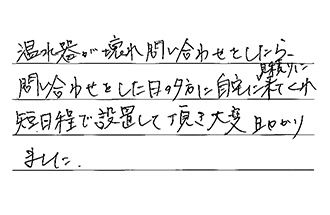 温水器が壊れ問い合わせをしたら、
問い合わせをした日の夕方に自宅に見積りに来てくれ
短日程で設置して頂き大変助かり
ました.